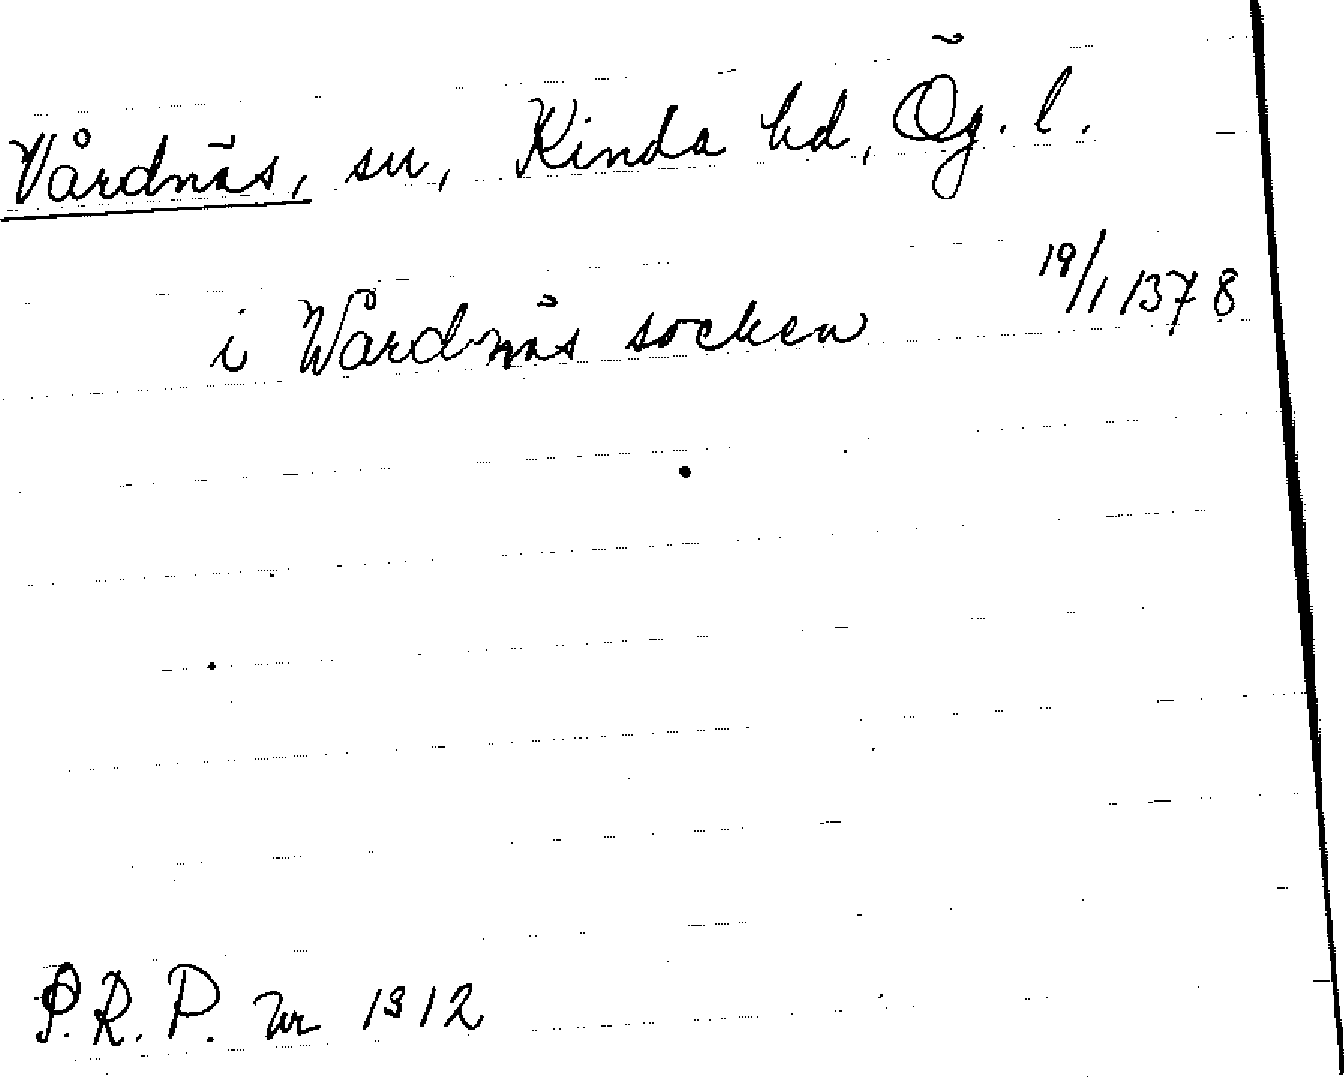 Vårdnäs, sn, Kinda hd, Ög. l.
i Wårdnäs socken 19/1 1378
P.R.P. nr 1312